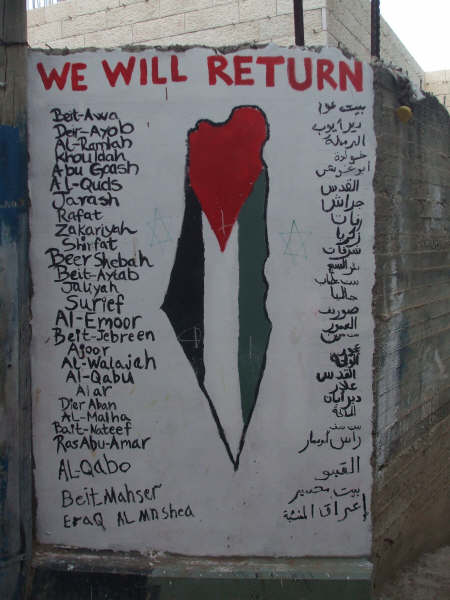 WE WILL RETURN
Beit-Awa
Deir-Ayob
Al-Ramlah
Khouldah
Abu Goash
Al-Quds
Jarash
Rafat
Zakariyah
Shirfat
Beer Shebah
Beit-Aytab
Jaliyah
Surief
Al-Emoor
Beit-Jebreen
Ajoor
Al-Walajah
Al-Qabu
Alar
Dier Aban
AL-Malha
Bait-Nateef
Ras Abu-Amar
AL-Qabo
Beit Mahser
EraQ AL MnShea
بيت عوا
دير أيوب
الرملة
خولدة
أبو غوش
القدس
جراش
رفات
زكريا
شرفات
صوريف
القدس
علار
دير أبان
رأس أبو عمار
القبو
بيت محسير
إعراق المنشية